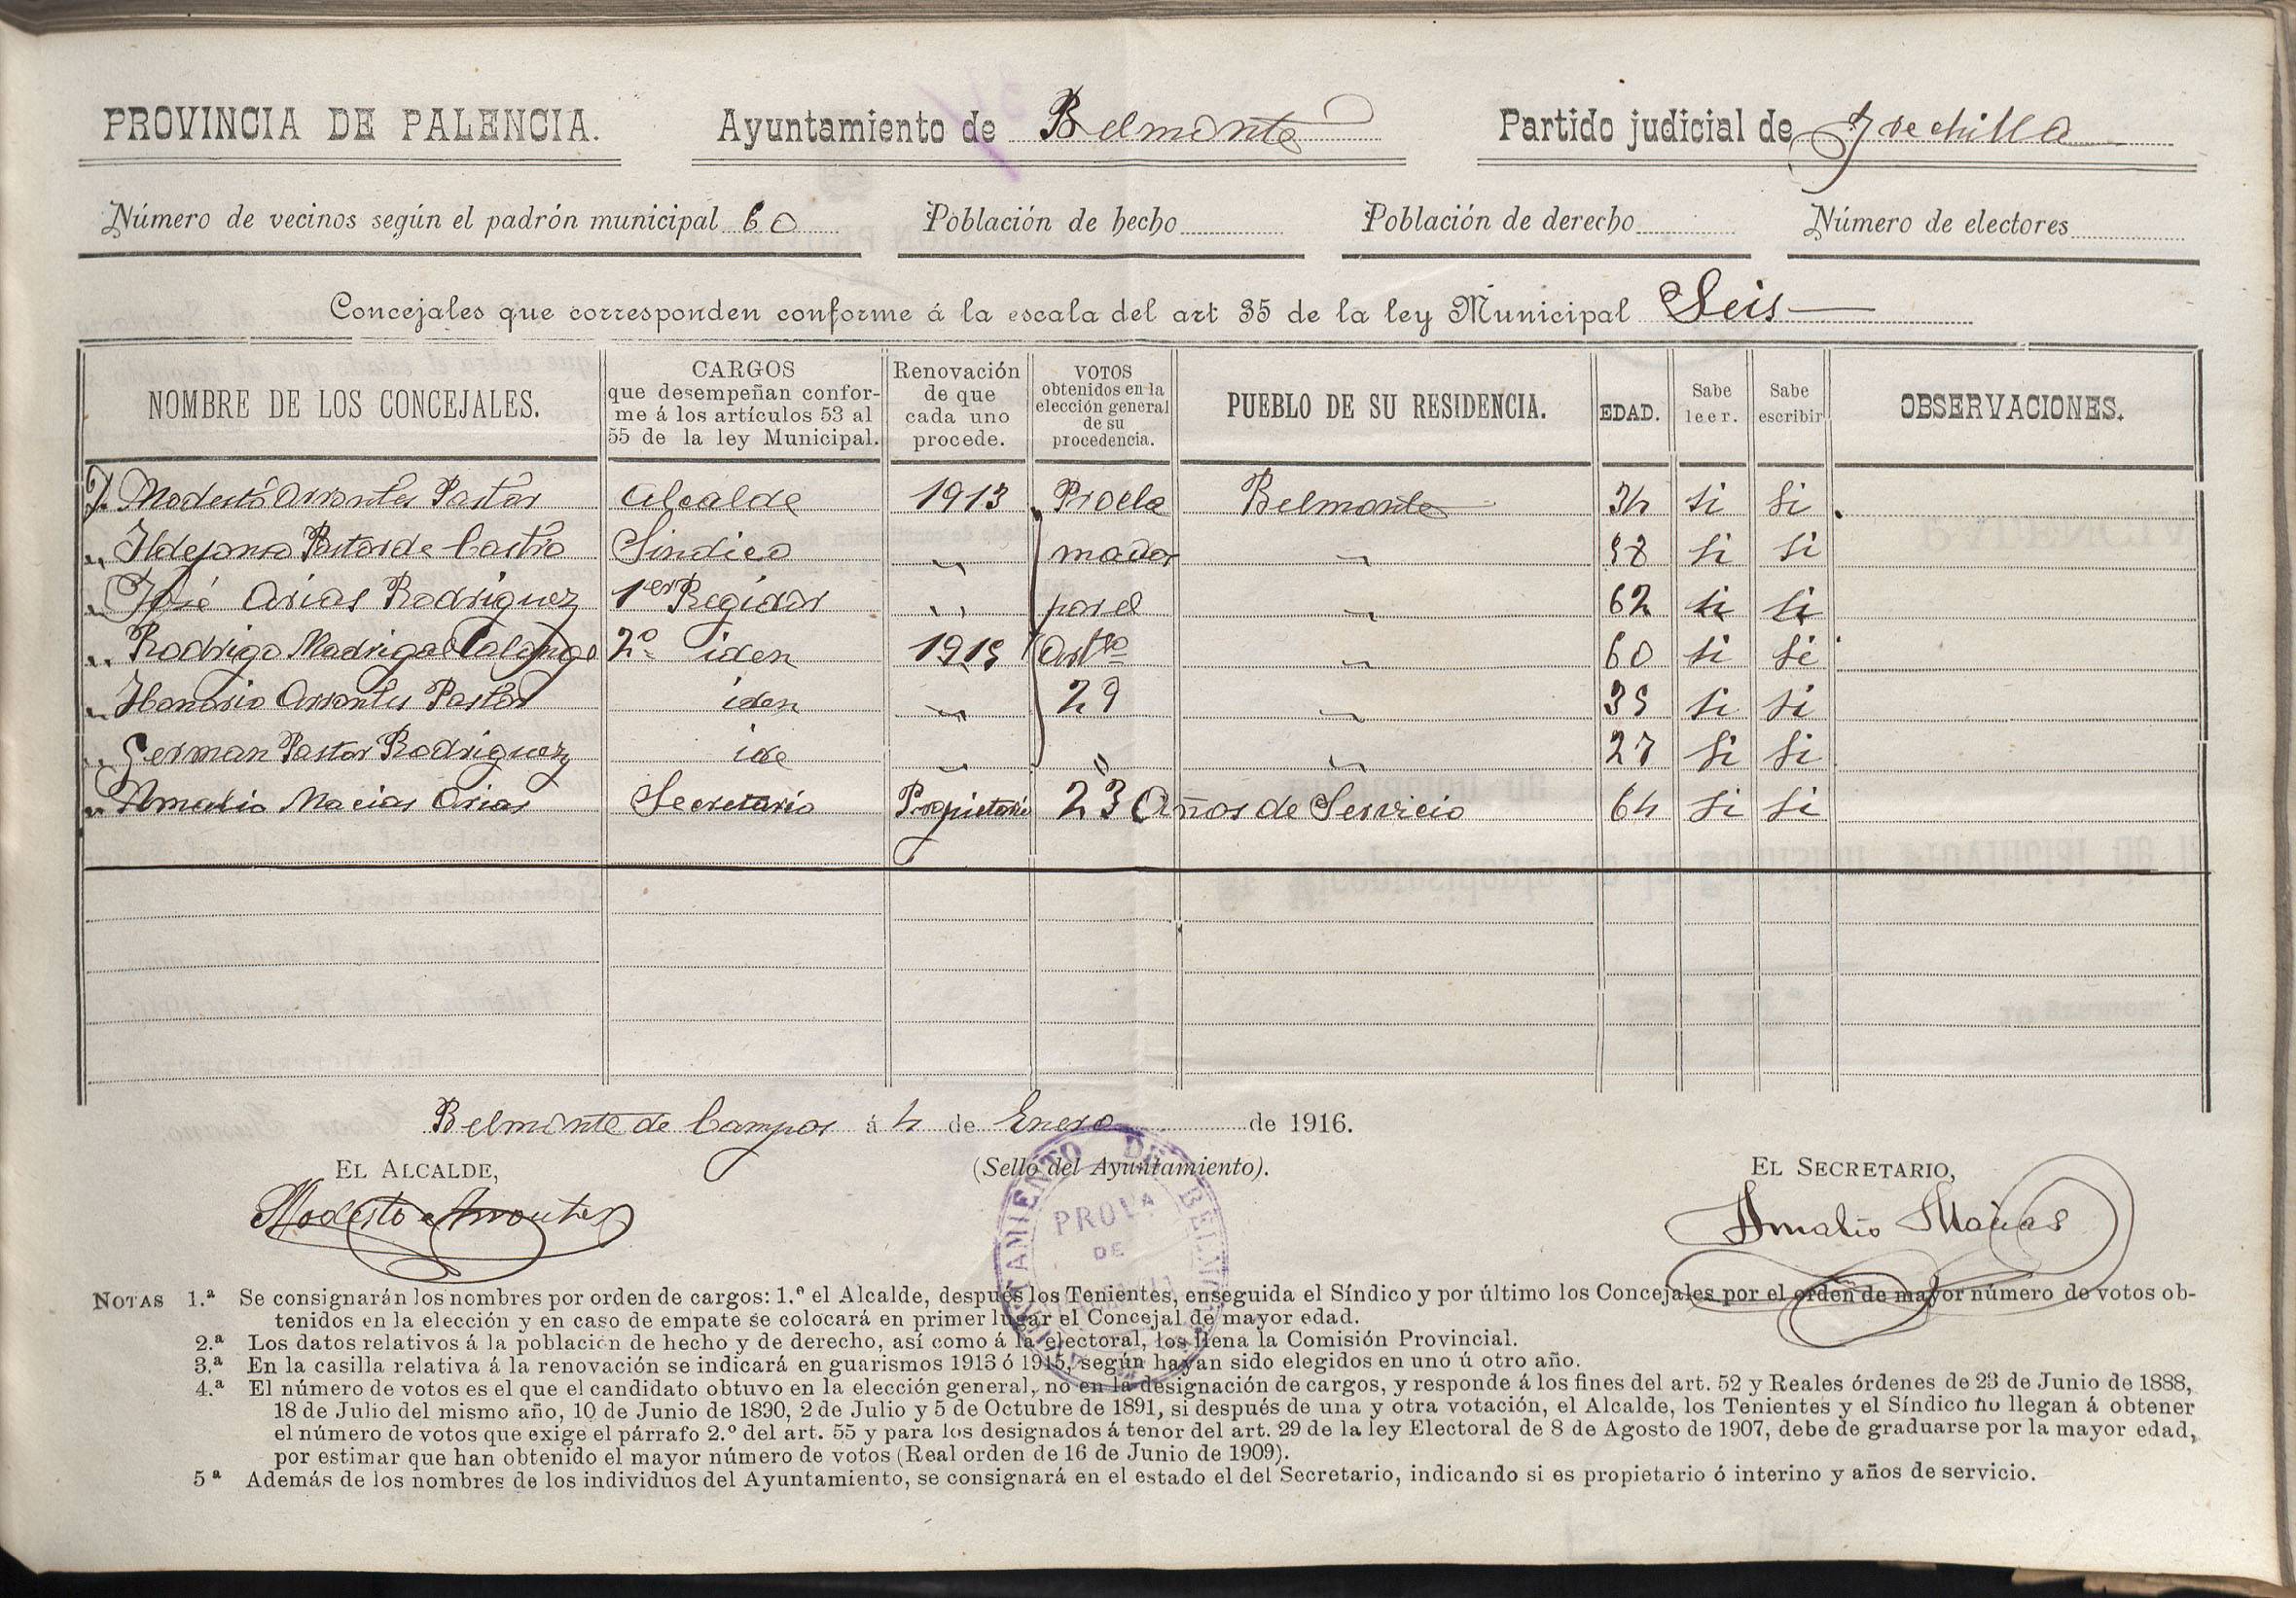 PROVINCIA DE PALENCIA. Ayuntamiento de Belmonte Partido judicial de Frechilla
Número de vecinos según el padrón municipal 60 Población de hecho Población de derecho Número de electores
Concejales que corresponden conforme á la escala del art 35 de la ley Municipal Seis
NOMBRE DE LOS CONCEJALES. CARGOS que desempeñan conforme á los artículos 53 al 55 de la ley Municipal. Renovación de que cada uno procede. VOTOS obtenidos en la elección general de su procedencia. PUEBLO DE SU RESIDENCIA. EDAD. Sabe leer. Sabe escribir OBSERVACIONES.
D. Modesto Arrontes Pastor Alcalde 1913 Procla Belmonte 34 si si
" Ildefonso Pastor de Castro Sindico " mados " 58 si si
" José Arias Rodriguez 1er Regidor " por el " 62 si si
" Rodrigo Madrigal Calonge 2º iden 1915 Artlo " 60 si si
" Honorio Arrontes Pastor iden " 29 " 35 si si
" German Pastor Rodriguez ide " " " 27 si si
" Amalio Macias Arias Secretario Propietario 23 Años de Servicio 64 si si
Belmonte de Campos á 4 de Enero de 1916.
EL ALCALDE, (Sello del Ayuntamiento). EL SECRETARIO,
Modesto Arrontes Amalio Macias
AYUNTAMIENTO DE BELMONTE
PROVA
DE
NOTAS 1.ª Se consignarán los nombres por orden de cargos: 1.º el Alcalde, después los Tenientes, enseguida el Síndico y por último los Concejales por el orden de mayor número de votos ob-
tenidos en la elección y en caso de empate se colocará en primer lugar el Concejal de mayor edad.
2.ª Los datos relativos á la población de hecho y de derecho, así como á la electoral, los llena la Comisión Provincial.
3.ª En la casilla relativa á la renovación se indicará en guarismos 1913 ó 1915, según hayan sido elegidos en uno ú otro año.
4.ª El número de votos es el que el candidato obtuvo en la elección general, no en la designación de cargos, y responde á los fines del art. 52 y Reales órdenes de 23 de Junio de 1888,
18 de Julio del mismo año, 10 de Junio de 1890, 2 de Julio y 5 de Octubre de 1891, si después de una y otra votación, el Alcalde, los Tenientes y el Síndico no llegan á obtener
el número de votos que exige el párrafo 2.º del art. 55 y para los designados á tenor del art. 29 de la ley Electoral de 8 de Agosto de 1907, debe de graduarse por la mayor edad,
por estimar que han obtenido el mayor número de votos (Real orden de 16 de Junio de 1909).
5ª Además de los nombres de los individuos del Ayuntamiento, se consignará en el estado el del Secretario, indicando si es propietario ó interino y años de servicio.